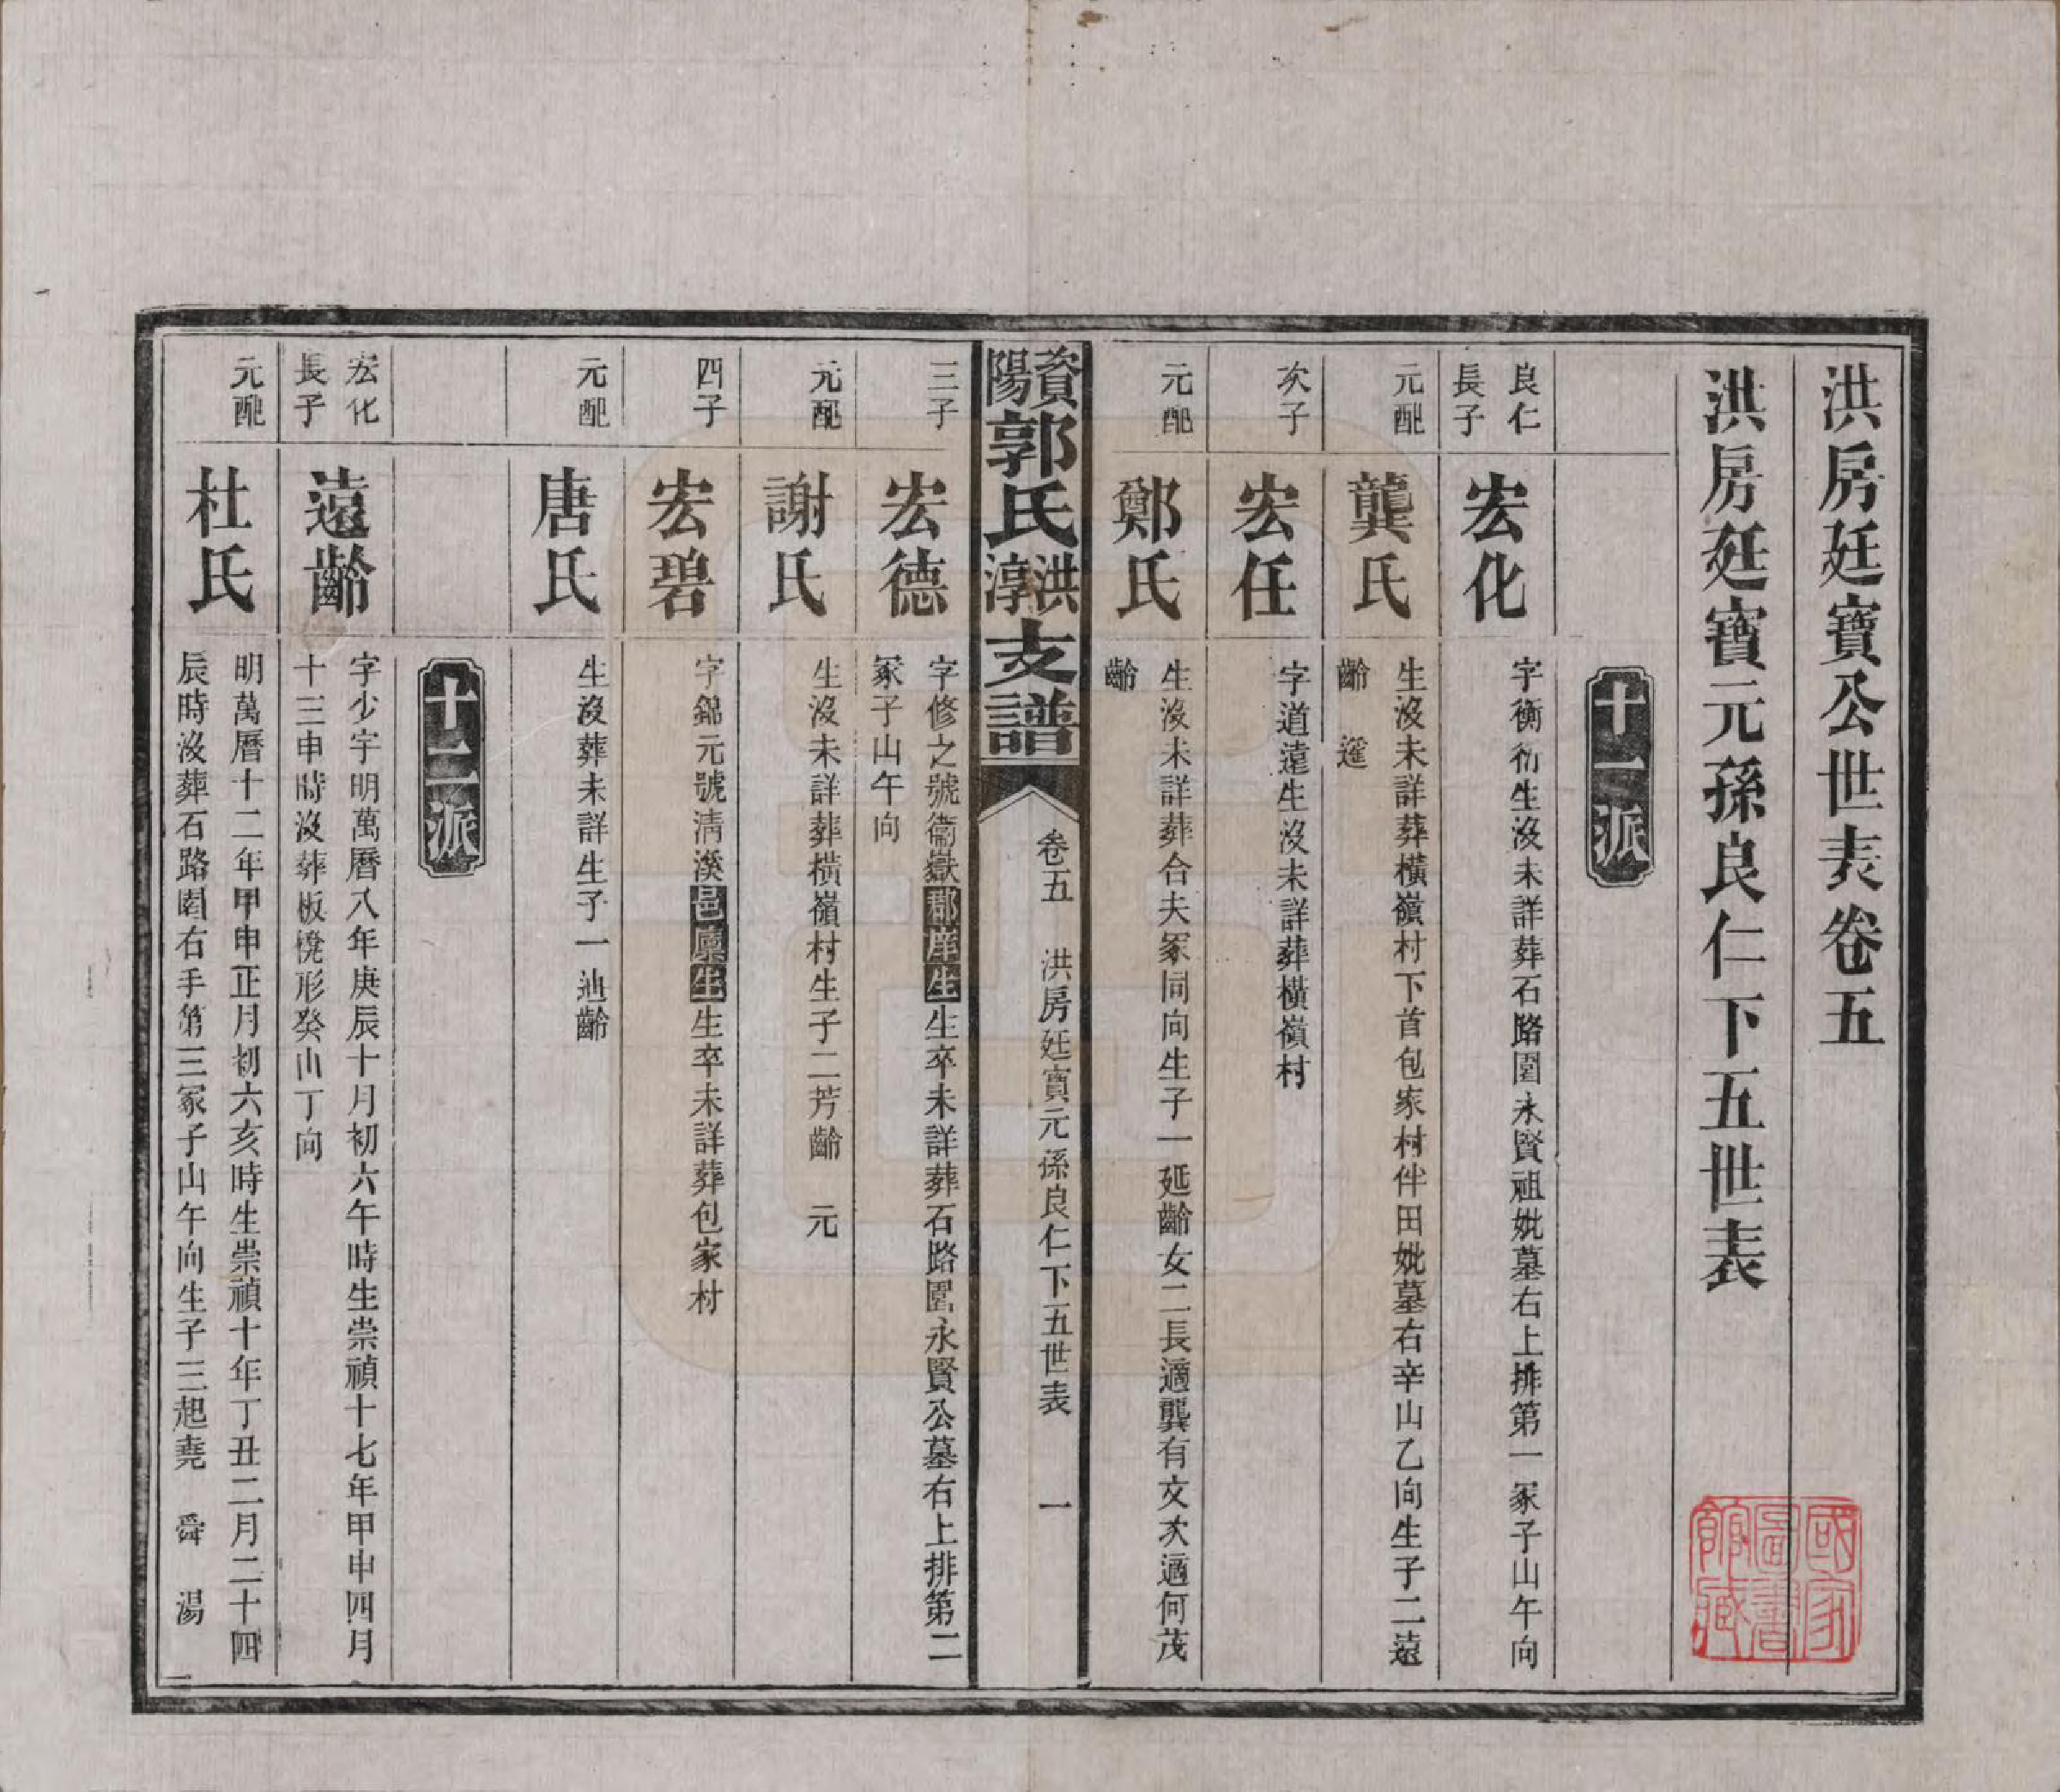 洪房廷寶公世表卷五
洪房廷寶元孫良仁下五世表
十一派
良仁
長子
宏化
字衡衍生沒未詳葬石路園永賢祖妣墓右上排第一冢子山午向
元配
龔氏
生沒未詳葬橫嶺村下首包家村伴田妣墓右辛山乙向生子二遠
齡 遐
次子
宏任
字道遠生沒未詳葬橫嶺村
元配
鄭氏
生沒未詳葬合夫冢同向生子一延齡女二長適龔有文次適何茂
齡
資陽郭氏洪淳支譜
卷五 洪房廷寶元孫良仁下五世表 一
三子
宏德
字修之號衞嶽郡庠生生卒未詳葬石路園永賢公墓右上排第二
冢子山午向
元配
謝氏
生沒未詳葬橫嶺村生子二芳齡 元
四子
宏碧
字錦元號清溪邑廩生生卒未詳葬包家村
元配
唐氏
生沒葬未詳生子一迪齡
十二派
宏化
長子
遠齡
字少宇明萬曆八年庚辰十月初六午時生崇禎十七年甲申四月
十三申時沒葬板櫈形癸山丁向
元配
杜氏
明萬曆十二年甲申正月初六亥時生崇禎十年丁丑二月二十四
辰時沒葬石路園右手第三冢子山午向生子三起堯 舜 湯
國家圖書館藏